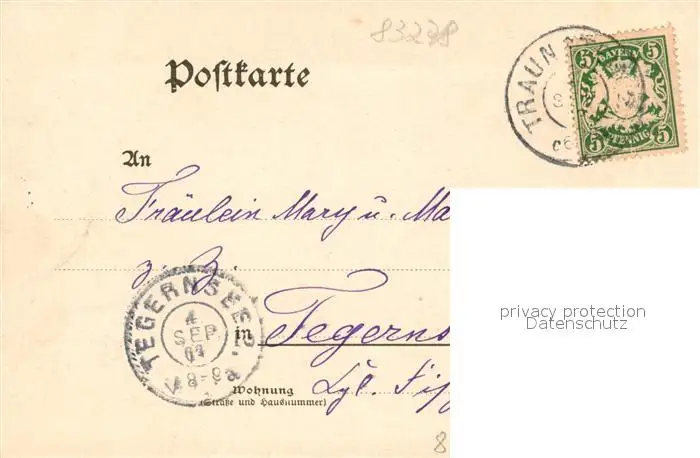 83278
Postkarte
TRAUN
BAYERN
5 5
5 5
PFENNIG
An
Fräulein Mary u. Ma
z. Z.
TEGERNSEE
4
SEP
in Tegerns
Vm 8-9
Wohnung
(Straße und Hausnummer)
Lgl.
8
privacy protection
Datenschutz